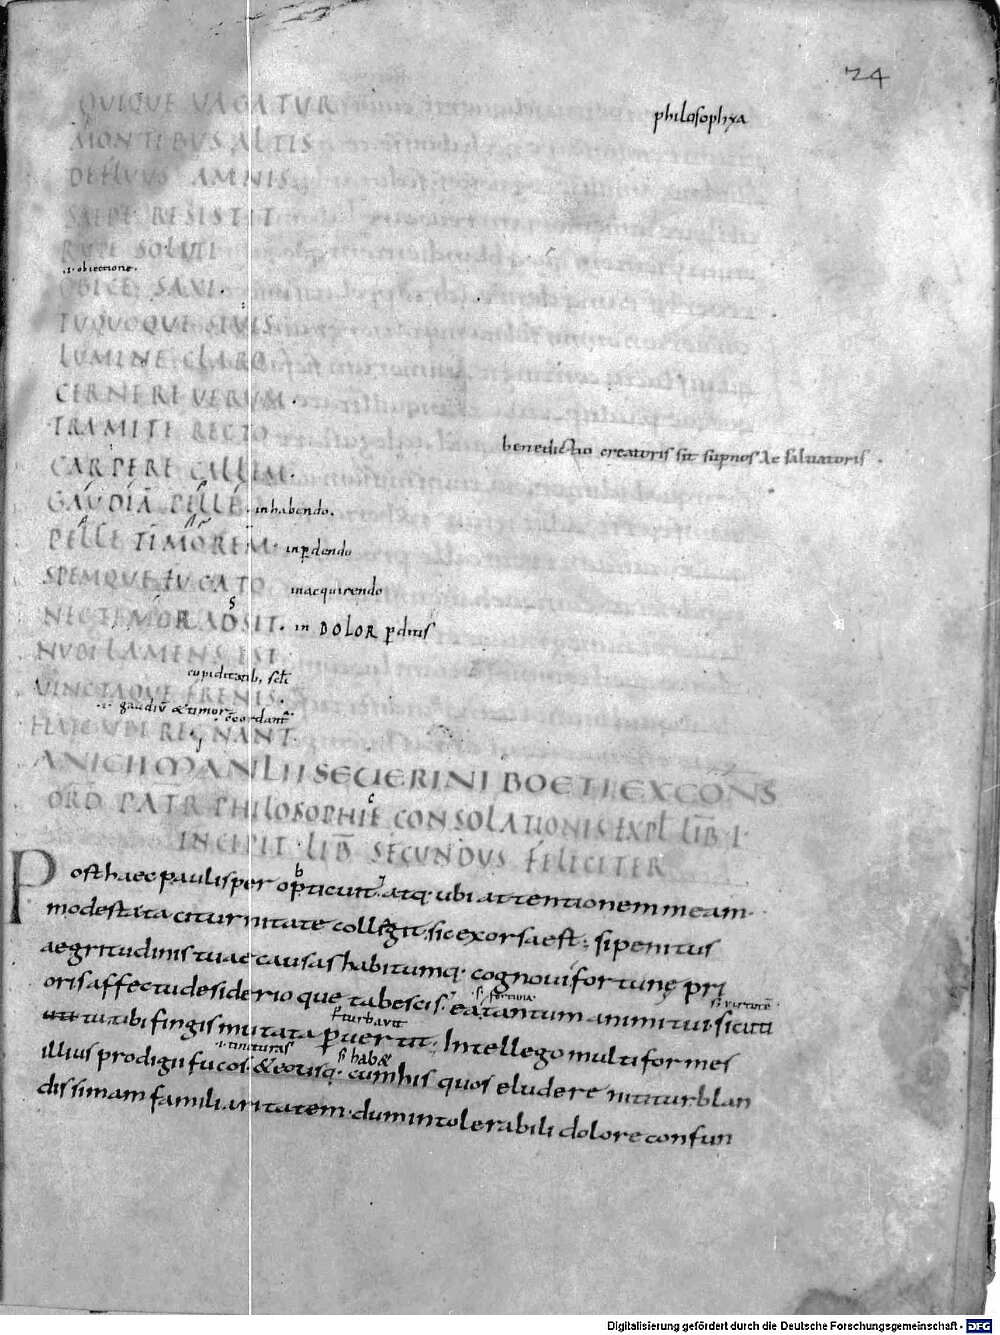 24
QUIQUE VAGATUR
philosophya
MONTIBUS ALTIS
DEFLUUS AMNIS
SAEPE RESISTIT
RUPE SOLUTI
.i. obiectione.
OBICE SAXI.
TUQUOQUE SIUIS
LUMINE CLARO
CERNERE VERUM.
TRAMITE RECTO
benedictio creatoris sit supnos &c saluatoris.
CARPERE CALLEM.
GAUDIA PELLE. inhabendo.
PELLE TIMOREM. inpdendo
SPEMQUE FUGATO inacquirendo
NEC DOLOR ADSIT. in DOLOR pditis
NUBILA MENS EST
cupiditatib, scil
VINCTAQUE FRENIS.
.i. gaudiu & timor
HAEC UBI REGNANT.
ANICII MANLII SEUERINI BOETII EXCONS
ORD PATR PHILOSOPHIE CONSOLATIONIS EXPL LIB I
INCIPIT LIB SECUNDUS FELICITER
Posthaec paulisper opticuit. atq. ubi attentionem meam
modesta taciturnitate collegit. sic exorsa est; sipenitus
aegritudinis tuae causas habitumq. cognoui fortunę pri
oris affectu desiderioque tabescis. ea tantum animi tui. sicuti
s. fortuna
tu tibi fingis mutata puertit; Intellego multiformes
s. turbauit
illius prodigii fucos. & eousq. cumhis quos eludere nititur blan
.i. tincturas s. hab&
dissimam familiaritatem. dum intolerabili dolore confun
Digitalisierung gefördert durch die Deutsche Forschungsgemeinschaft - DFG